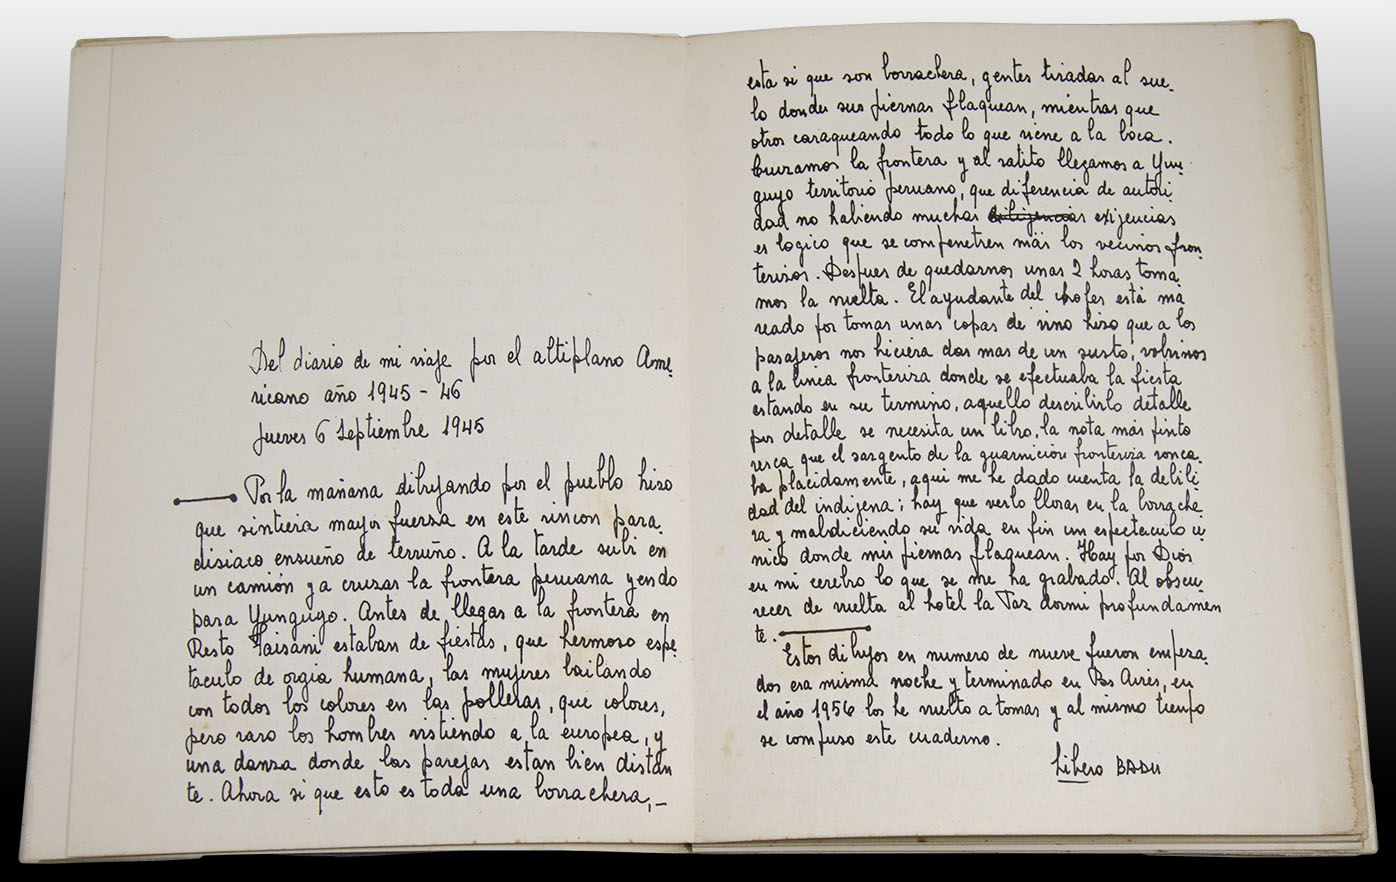 Del diario de mi viaje por el altiplano Ame-
ricano año 1945 - 46
Jueves 6 Septiembre 1945
Por la mañana dibujando por el pueblo hizo
que sintiera mayor fuerza en este rincon para
disiaco ensueño de terruño. A la tarde subi en
un camión ya cruzar la frontera peruana yendo
para Yunguyo. Antes de llegar a la frontera en
Resto Paisani estaban de fiestas, que hermoso espe-
taculo de orgia humana, las mujeres bailando
con todos los colores en las polleras, que colores,
pero raro los hombres vistiendo a la europea, y
una danza donde las parejas estan bien distan
te. Ahora si que esto es toda una borrachera,-
esta si que son borrachera, gentes tiradas al sue-
lo donde sus piernas flaquean, mientras que
otros caraqueando todo lo que viene a la boca.
Cruzamos la frontera y al ratito llegamos a Yun-
guyo territorio peruano, que diferencia de autori
dad no habiendo muchas diligencias exijencias
es logico que se compenetren más los vecinos fron-
terizos. Despues de quedarnos unas 2 horas toma
mos la vuelta. El ayudante del chofer está ma
reado por tomar unas copas de vino hizo que a los
pasajeros nos hiciera dar mas de un susto, volvimos
a la linea fronteriza donde se efectuaba la fiesta
estando en su termino, aquello describirlo detalle
por detalle se necesita un libro, la nota más pinto
resca que el sargento de la guarnición fronteriza ronca-
ba placidamente, aqui me he dado cuenta la debili
dad del indigena; hay que verlo llorar en la borrache-
ra y maldiciendo su vida en fin un espectaculo u-
nico donde mis piernas flaquean. Hay por Dios
en mi cerebro lo que se me ha grabado. Al obscu-
recer de vuelta al hotel la Paz dormi profundamen
te.
Estos dibujos en numero de nueve fueron empeza-
dos esa misma noche y terminado en Bos Aires, en
el año 1956 los he vuelto a tomar y al mismo tiempo
se compuso este cuaderno.
Libero BADII